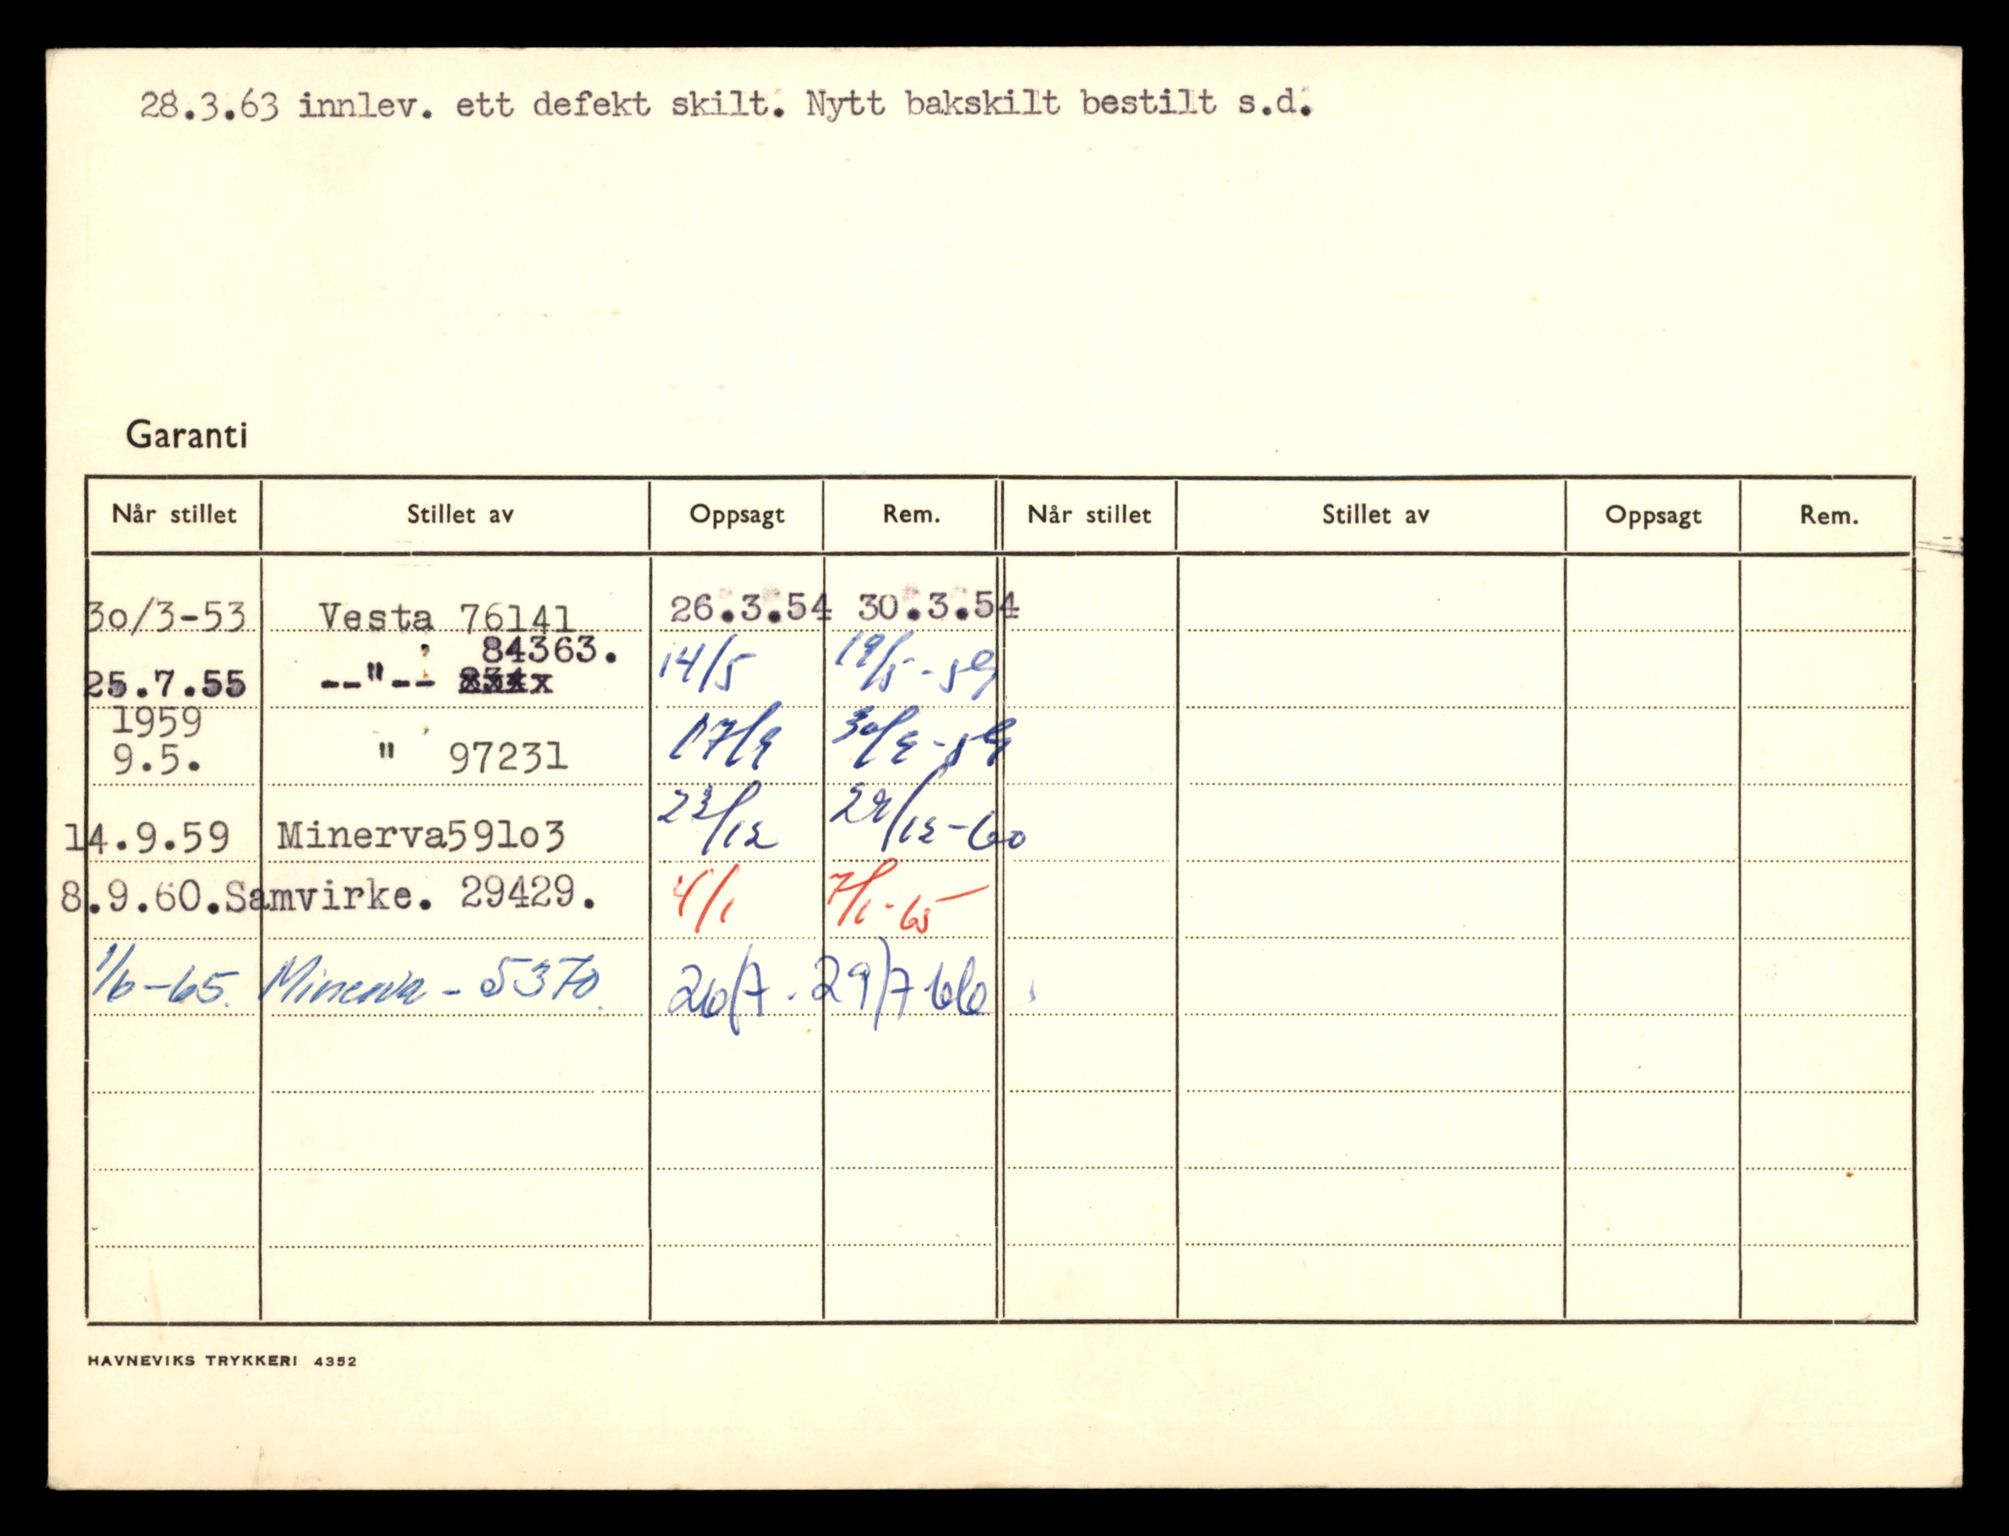 28.3.63 innlev. ett defekt skilt. Nytt bakskilt bestilt s.d.
Garanti
Når stillet Stillet av Oppsagt Rem. Når stillet Stillet av Oppsagt Rem.
3o/3-53 Vesta 76141 26.3.54 30.3.54
84363.
25.7.55 --"-- 14/5 19/5-59
1959
9.5. " 97231 17/9 30/9-59
14.9.59 Minerva591o3 23/12 29/12-60
8.9.60. Samvirke. 29429. 4/1 7/1-65
1/6-65. Minerva - 5370. 26/7. 29/7 66
HAVNEVIKS TRYKKERI 4352